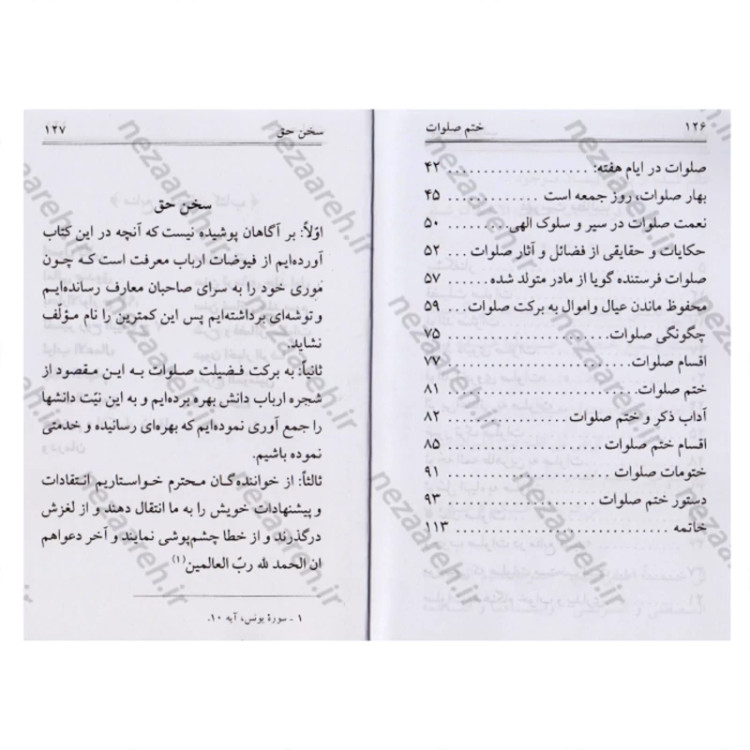 ۱۲۶ ختم صلوات
صلوات در ایام هفته: ..................... ۴۲
بهار صلوات، روز جمعه است ............. ۴۵
نعمت صلوات در سیر و سلوک الهی......... ۵۰
حکایات و حقایقی از فضائل و آثار صلوات ... ۵۲
صلوات فرستنده گویا از مادر متولد شده ..... ۵۷
محفوظ ماندن عیال واموال به برکت صلوات .. ۵۹
چگونگی صلوات....................... ۷۵
اقسام صلوات ........................ ۷۷
ختم صلوات.......................... ۸۱
آداب ذکر و ختم صلوات ................ ۸۲
اقسام ختم صلوات..................... ۸۵
ختومات صلوات ...................... ۹۱
دستور ختم صلوات .................... ۹۳
خاتمه ............................. ۱۱۳
سخن حق ۱۲۷
سخن حق
اوّلاً: بر آگاهان پوشیده نیست که آنچه در این کتاب
آورده‌ایم از فیوضات ارباب معرفت است که چون
موری خود را به سرای صاحبان معارف رسانده‌ایم
و توشه‌ای برداشته‌ایم پس این کمترین را نام مؤلّف
نشاید.
ثانیاً: به برکت فضیلت صلوات به این مقصود از
شجره ارباب دانش بهره برده‌ایم و به این نیّت دانشها
را جمع آوری نموده‌ایم که بهره‌ای رسانیده و خدمتی
نموده باشیم.
ثالثاً: از خواننده‌گان محترم خواستاریم انتقادات
و پیشنهادات خویش را به ما انتقال دهند و از لغزش
درگذرند و از خطا چشم‌پوشی نمایند و آخر دعواهم
ان الحمد لله ربّ العالمین(۱)
۱ - سورهٔ یونس، آیه ۱۰.
nezaareh.ir